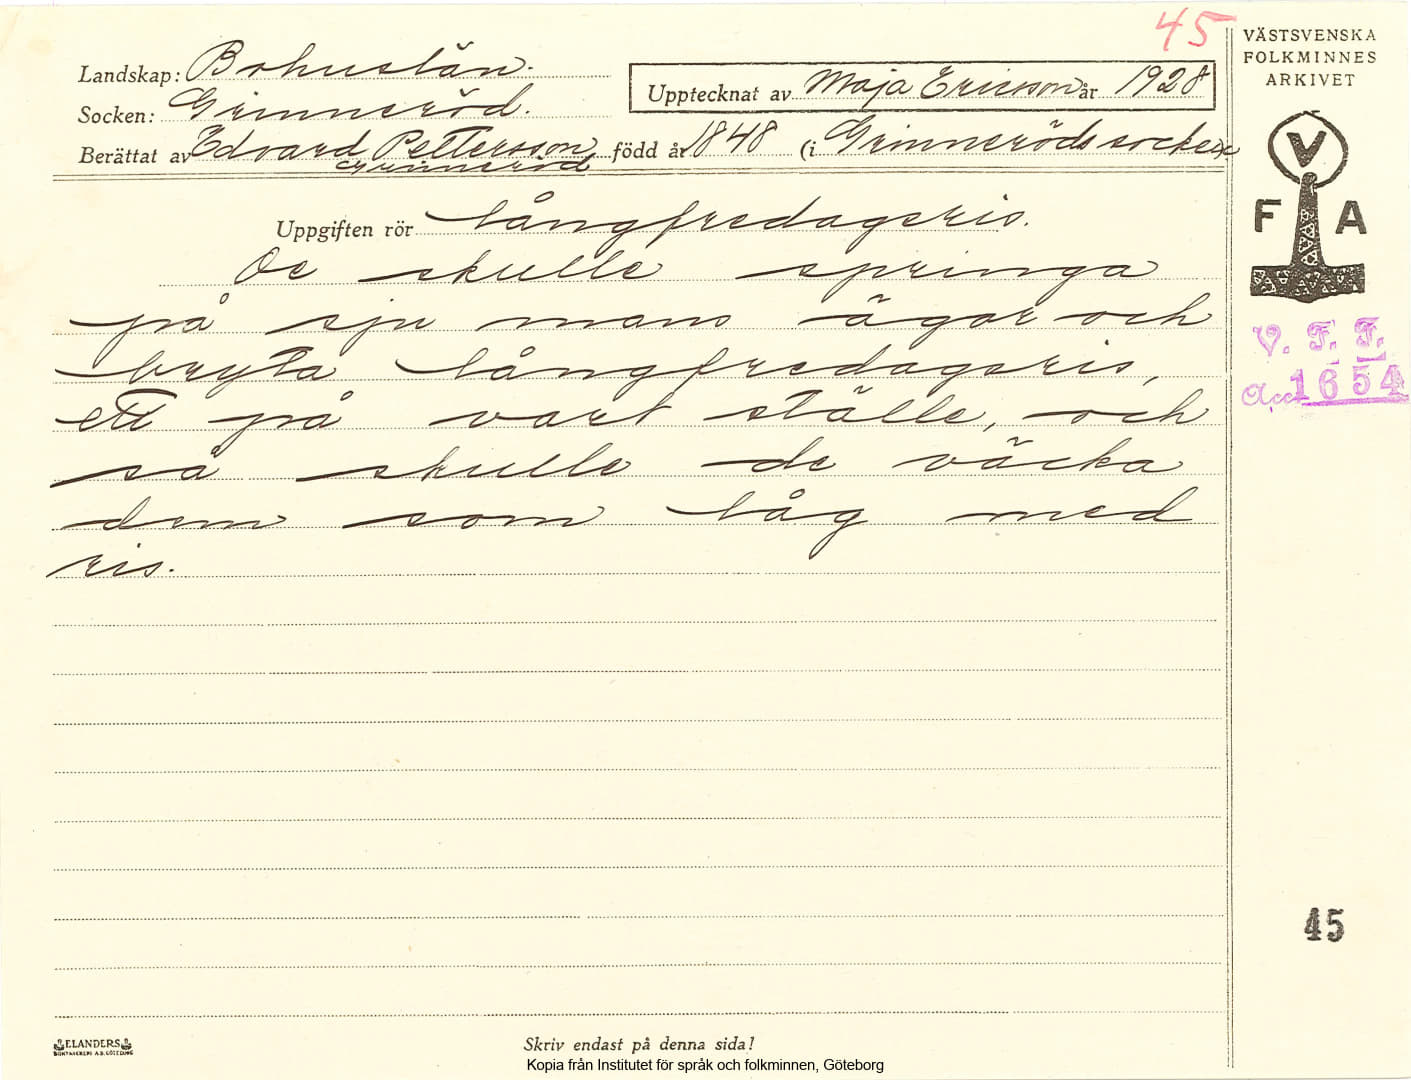 45
Landskap: Bohuslän.
Socken: Grinneröd.
Berättat av Edvard Pettersson född år 1848 (i Grinneröds socken)
Grinneröd
Upptecknat av Maja Ericsson år 1928
VÄSTSVENSKA
FOLKMINNES
ARKIVET
V
F A
Uppgiften rör långfredagsris.
De skulle springa
på sju mans ägor och
bryta långfredagsris,
ett på vart ställe, och
så skulle de väcka
dem som låg med
ris.
V. F. F.
Acc 1654
45
ELANDERS
BOKTRYCKERI A.B. GÖTEBORG
Skriv endast på denna sida!
Kopia från Institutet för språk och folkminnen, Göteborg